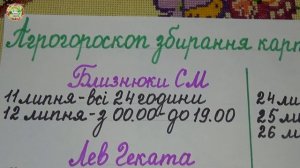 Агрогороскоп збирання карт
Близнюки СМ
11 липня - всі 24 години
12 липня - з 00.00 до 19.00
24 ли
25 ли
26 л
Лев Геката